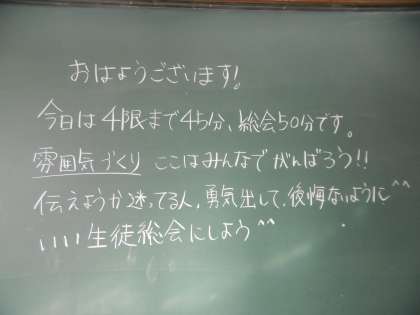 おはようございます!
今日は4限まで45分、総会50分です。
雰囲気づくり ここはみんなでがんばろう!!
伝えようか迷ってる人、勇気出して、後悔ないように^^
いい生徒総会にしよう^^